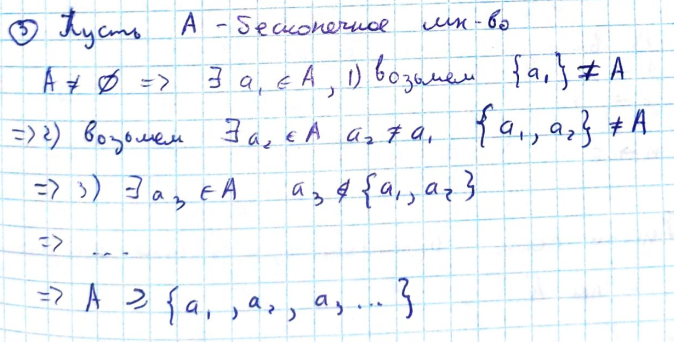 ③ Пусть A - бесконечное мн-во
A ≠ ∅ => ∃ a₁ ∈ A, 1) возьмем {a₁} ≠ A
=> 2) возьмем ∃ a₂ ∈ A a₂ ≠ a₁ {a₁, a₂} ≠ A
=> 3) ∃ a₃ ∈ A a₃ ∉ {a₁, a₂}
=> ...
=> A ⩾ {a₁, a₂, a₃ ...}